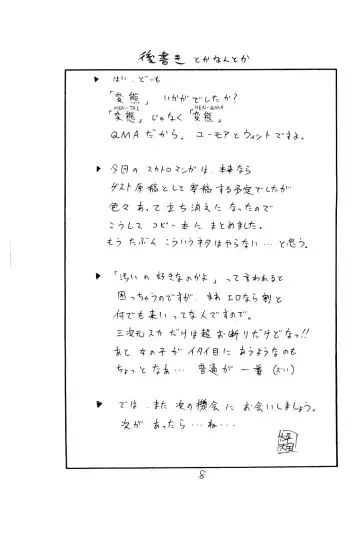 後書き とかなんとか
▶ はい、どーも
「変熊」いかがでしたか?
HEN-TAI HEN-QMA
「変態」じゃなく「変熊」
QMAだから。ユーモアとウィットですよ。
▶ 今回のスカトロマンガは、本来なら
ゲスト原稿として寄稿する予定でしたが
色々あって立ち消えになったので
こうしてコピー本にまとめました。
もうたぶんこういうネタはやらない…と思う。
▶ 「汚いの好きなのかよ」って言われると
困っちゃうのですが、まあエロなら割と
何でも来いってなんですので。
三次元スカだけは超お断りだけどなっ!!
あと女の子がイタイ目にあうようなのも
ちょっとなあ… 普通が一番
▶ では、また次の機会にお会いしましょう。
次があったら…ね…
8